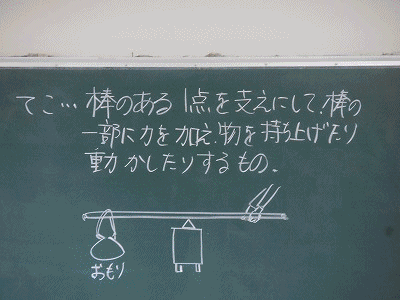 てこ… 棒のある1点を支えにして、棒の
一部に力を加え、物を持ち上げたり
動かしたりするもの。
おもり